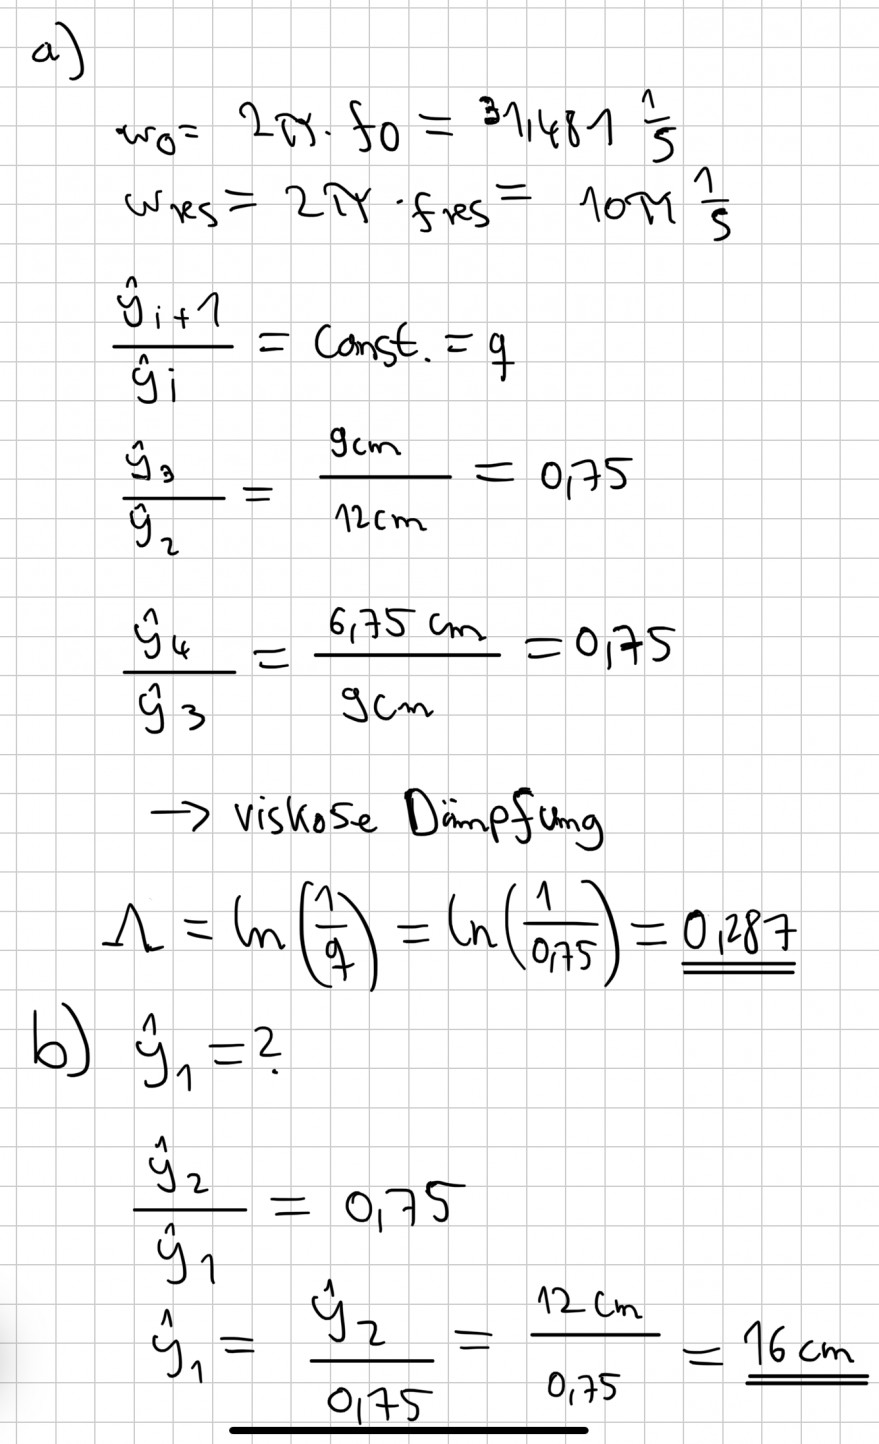 a)
ω0 = 2π · f0 = 31,481 1/s
ωres = 2π · fres = 10π 1/s
ŷi+1 / ŷi = const. = q
ŷ3 / ŷ2 = 9cm / 12cm = 0,75
ŷ4 / ŷ3 = 6,75 cm / 9cm = 0,75
→ viskose Dämpfung
Λ = ln(1/q) = ln(1/0,75) = 0,287
b) ŷ1 = ?
ŷ2 / ŷ1 = 0,75
ŷ1 = ŷ2 / 0,75 = 12 cm / 0,75 = 16 cm